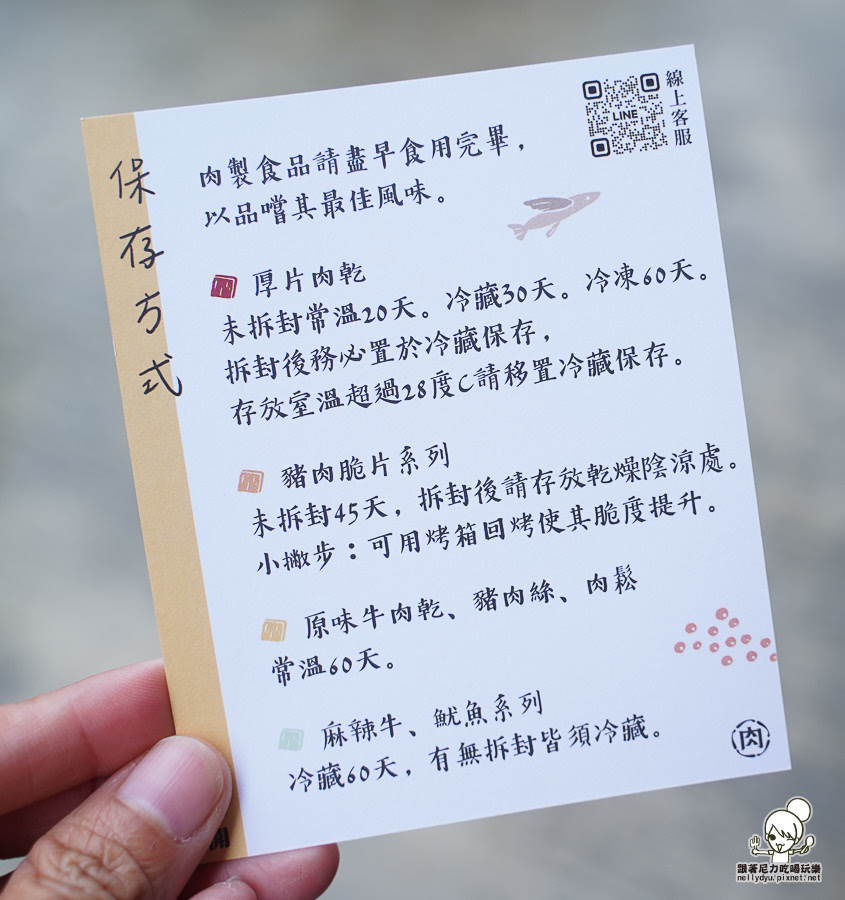 保存方式
LINE
線上客服
肉製食品請盡早食用完畢，
以品嚐其最佳風味。
厚片肉乾
未拆封常溫20天。冷藏30天。冷凍60天。
拆封後務必置於冷藏保存，
存放室溫超過28度C請移置冷藏保存。
豬肉脆片系列
未拆封45天，拆封後請存放乾燥陰涼處。
小撇步：可用烤箱回烤使其脆度提升。
原味牛肉乾、豬肉絲、肉鬆
常溫60天。
麻辣牛、魷魚系列
冷藏60天，有無拆封皆須冷藏。
肉
跟著尼力吃喝玩樂
nellydyu.pixnet.net